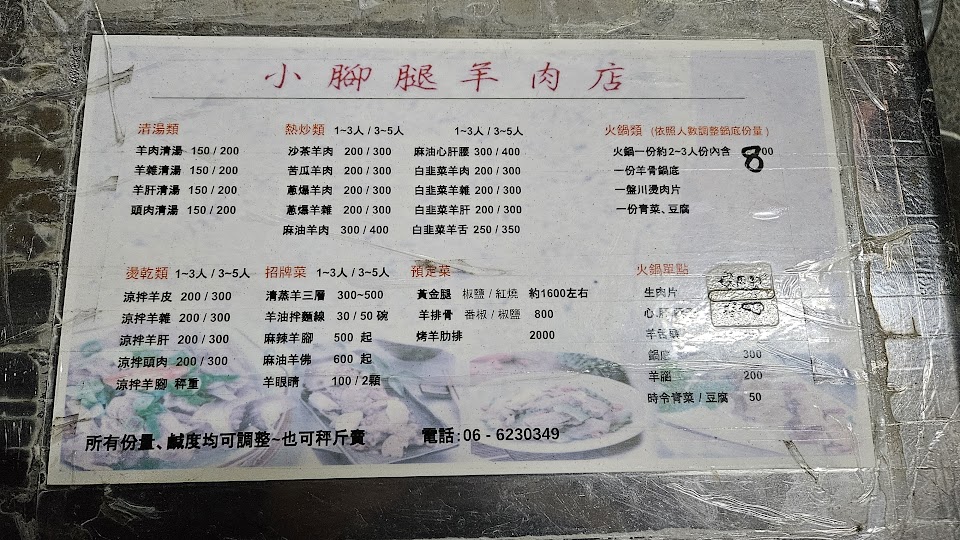 小腳腿羊肉店
清湯類
羊肉清湯 150 / 200
羊雜清湯 150 / 200
羊肝清湯 150 / 200
頭肉清湯 150 / 200
熱炒類 1~3人 / 3~5人
沙茶羊肉 200 / 300
苦瓜羊肉 200 / 300
蔥爆羊肉 200 / 300
蔥爆羊雜 200 / 300
麻油羊肉 300 / 400
1~3人 / 3~5人
麻油心肝腰 300 / 400
白韭菜羊肉 200 / 300
白韭菜羊雜 200 / 300
白韭菜羊肝 200 / 300
白韭菜羊舌 250 / 350
火鍋類 (依照人數調整鍋底份量)
火鍋一份約2~3人份內含 800
一份羊骨鍋底
一盤川燙肉片
一份青菜、豆腐
燙乾類 1~3人 / 3~5人
涼拌羊皮 200 / 300
涼拌羊雜 200 / 300
涼拌羊肝 200 / 300
涼拌頭肉 200 / 300
涼拌羊腳 秤重
招牌菜 1~3人 / 3~5人
清蒸羊三層 300~500
羊油拌麵線 30 / 50 碗
麻辣羊腳 500 起
麻油羊佛 600 起
羊眼睛 100 / 2顆
預定菜
黃金腿 椒鹽 / 紅燒 約1600左右
羊排骨 番椒 / 椒鹽 800
烤羊肋排 2000
火鍋單點
生肉片
心肝
羊舌
鍋底 300
羊腦 200
時令青菜 / 豆腐 50
所有份量、鹹度均可調整~也可秤斤賣
電話:06 - 6230349